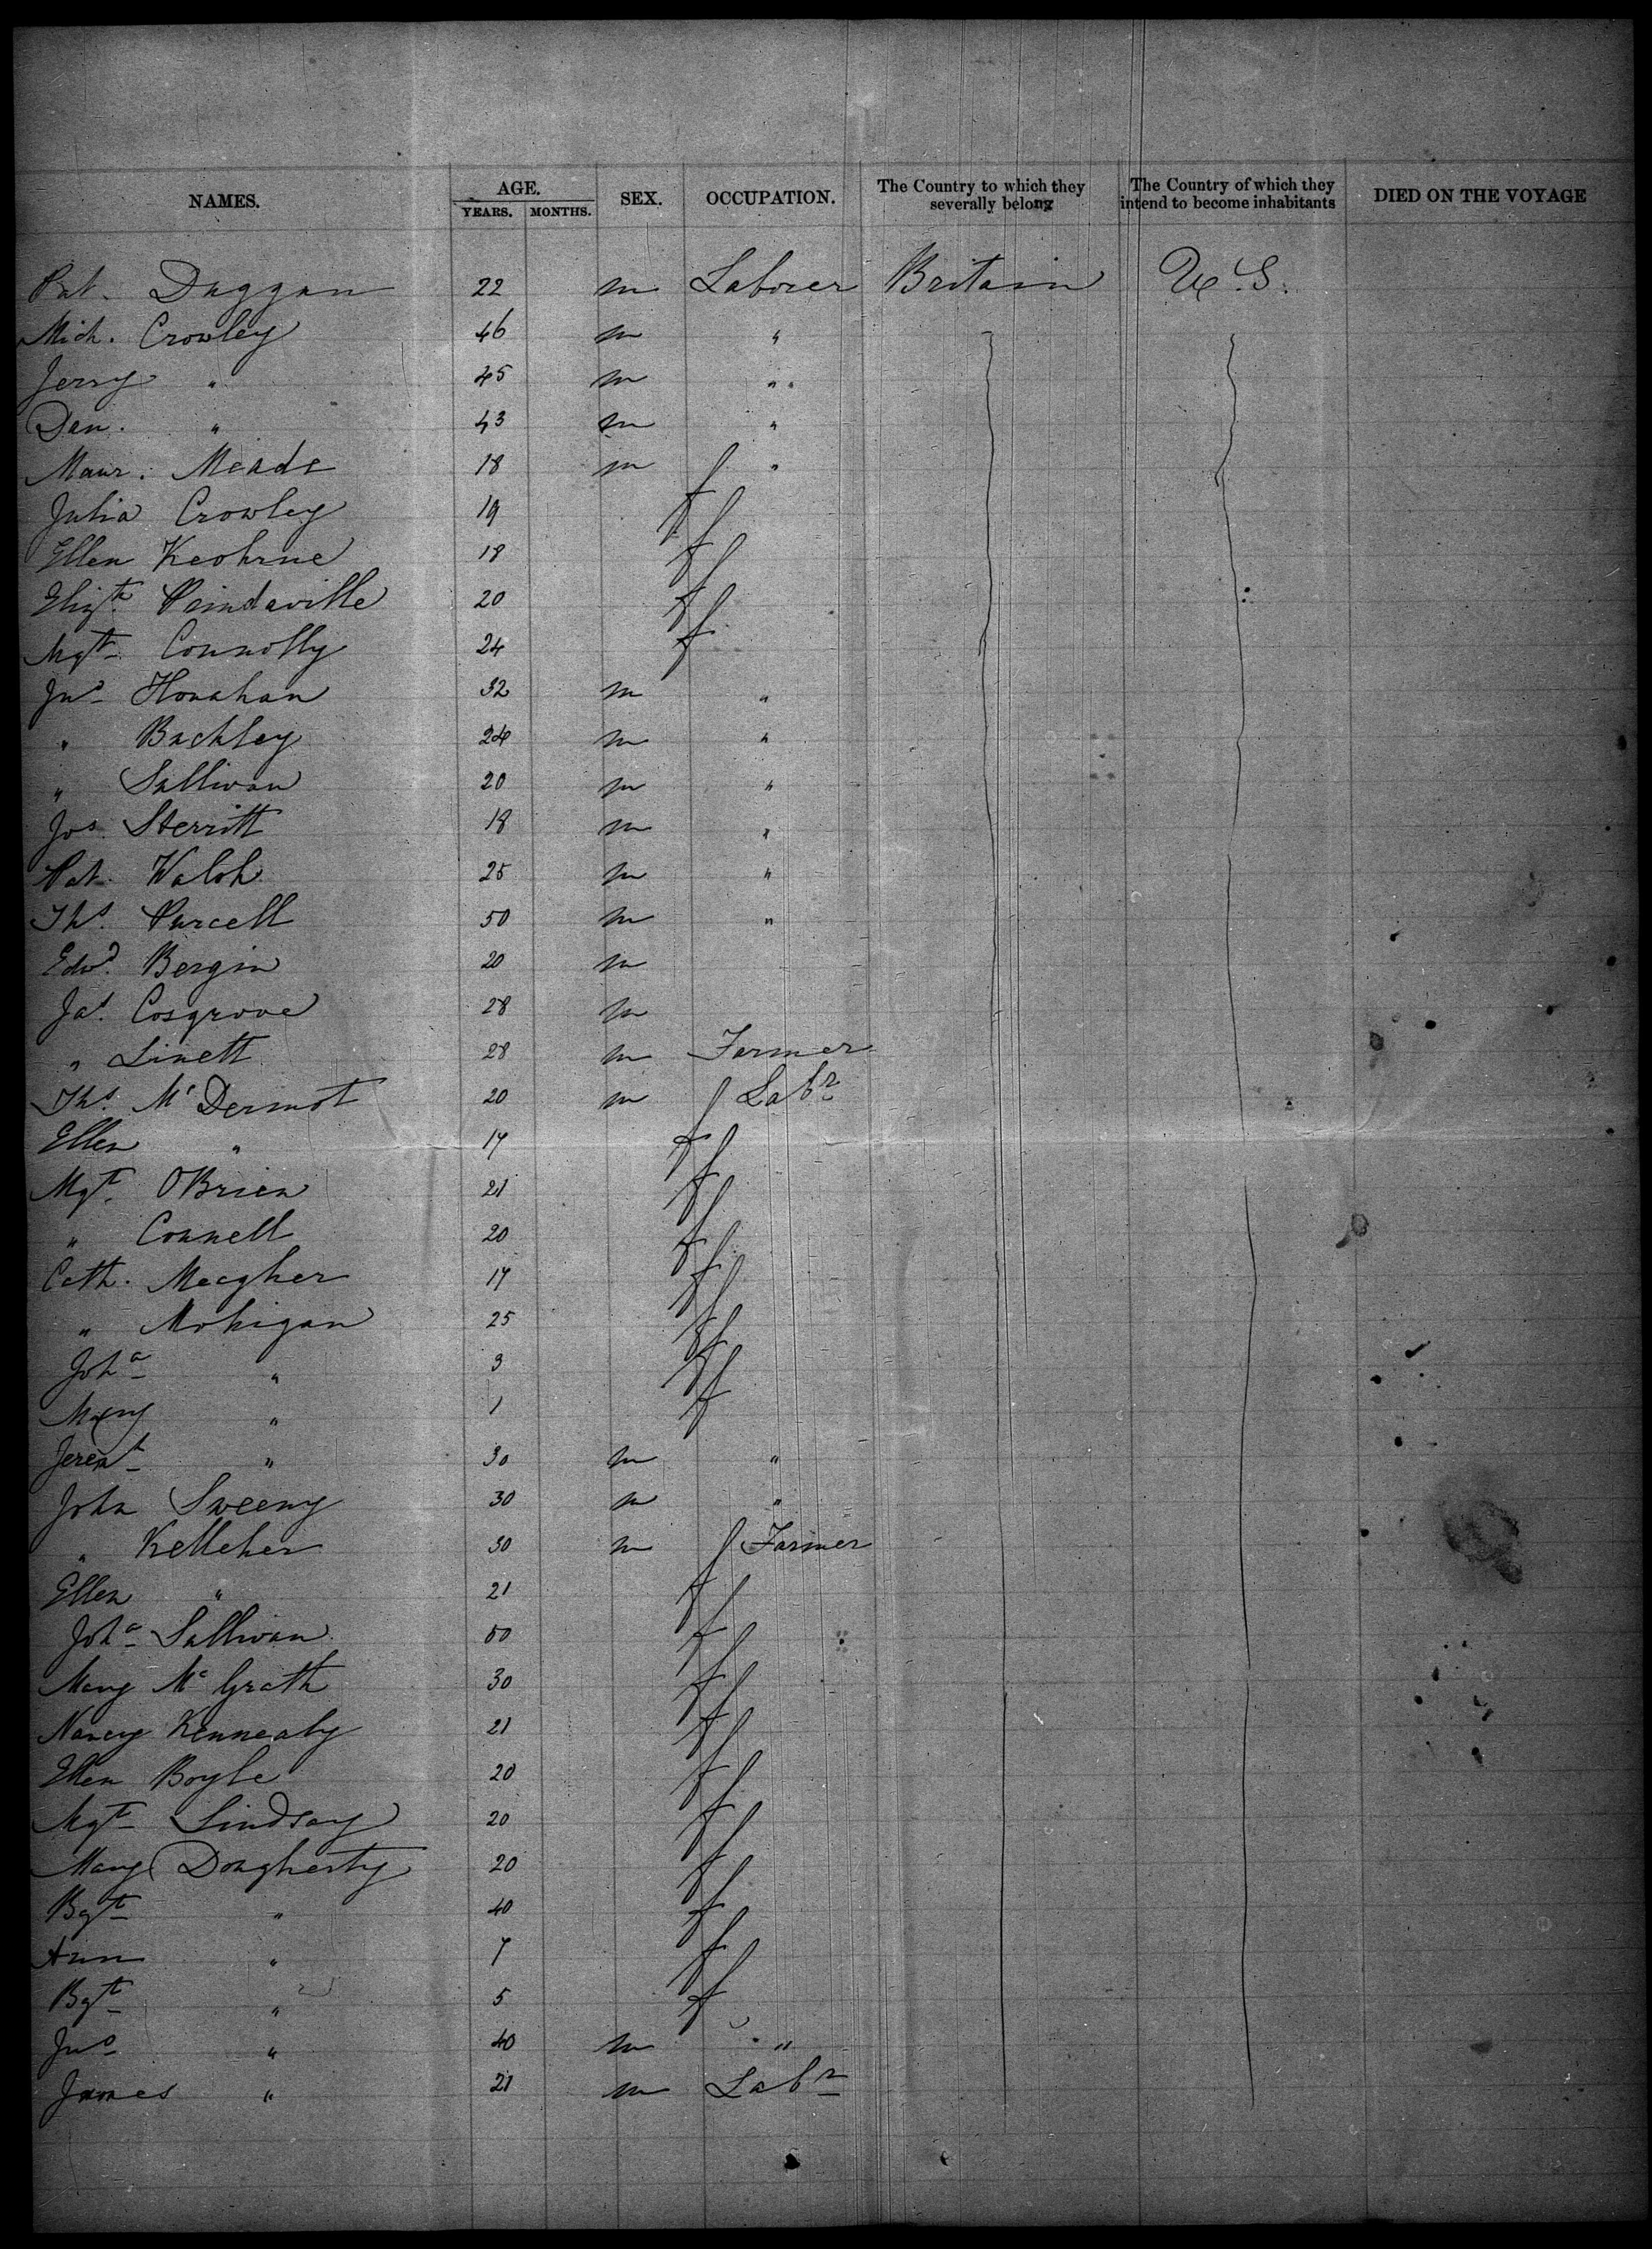 NAMES. AGE. YEARS. MONTHS. SEX. OCCUPATION. The Country to which they severally belong The Country of which they intend to become inhabitants DIED ON THE VOYAGE
Pat. Duggan 22 m Laborer Britain U.S.
Mich. Crowley 46 m "
Jerry " 45 m "
Den. " 43 m "
Maur. Meade 18 m "
Julia Crowley 19 f
Ellen Keohane 18 f
Elizth. Prindaville 20 f
Mgt. Connolly 24 f
Jno. Honahan 32 m "
" Buckley 24 m "
" Sullivan 20 m "
Jos. Sterritt 18 m "
Pat. Walsh 25 m "
Ths. Purcell 50 m "
Edwd. Bergin 20 m
Jas. Cosgrove 28 m
" Linett 28 m Farmer
Ths. McDermot 20 m Labr.
Ellen " 17 f
Mgt. OBrien 21 f
" Connell 20 f
Cath. Meagher 17 f
" Mohigan 25 f
Joha. " 3 f
Mary " 1 f
Jereh. " 30 m "
John Sweeny 30 m "
" Kelleher 30 m Farmer
Ellen " 21 f
Joha. Sullivan 50 f
Mary McGrath 30 f
Nancy Kennealy 21 f
Ellen Boyle 20 f
Mgt. Lindsay 20 f
Mary Dougherty 20 f
Bgt. " 40 f
Ann " 7 f
Bgt. " 5 f
Jno. " 40 m "
James " 21 m Labr.